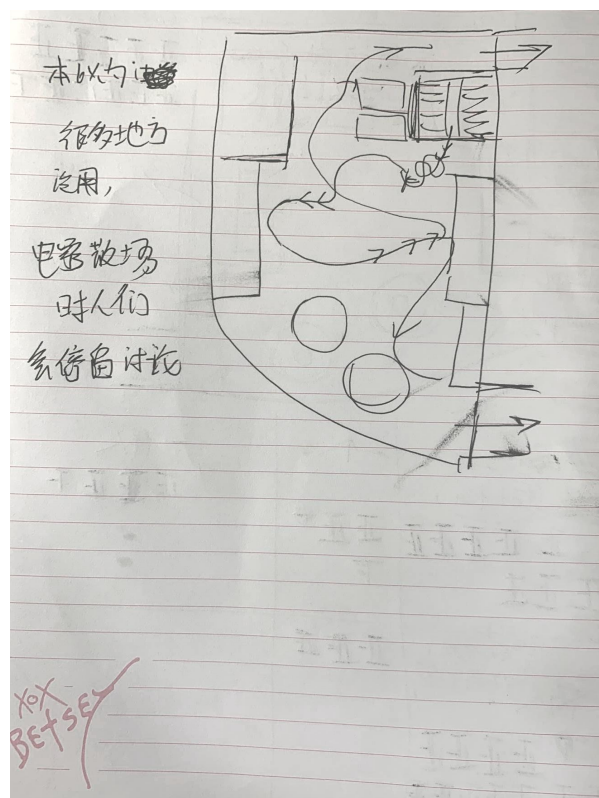 本以为
很多地方
没用，
电影散场
时人们
会停留讨论
XOX
BETSEY